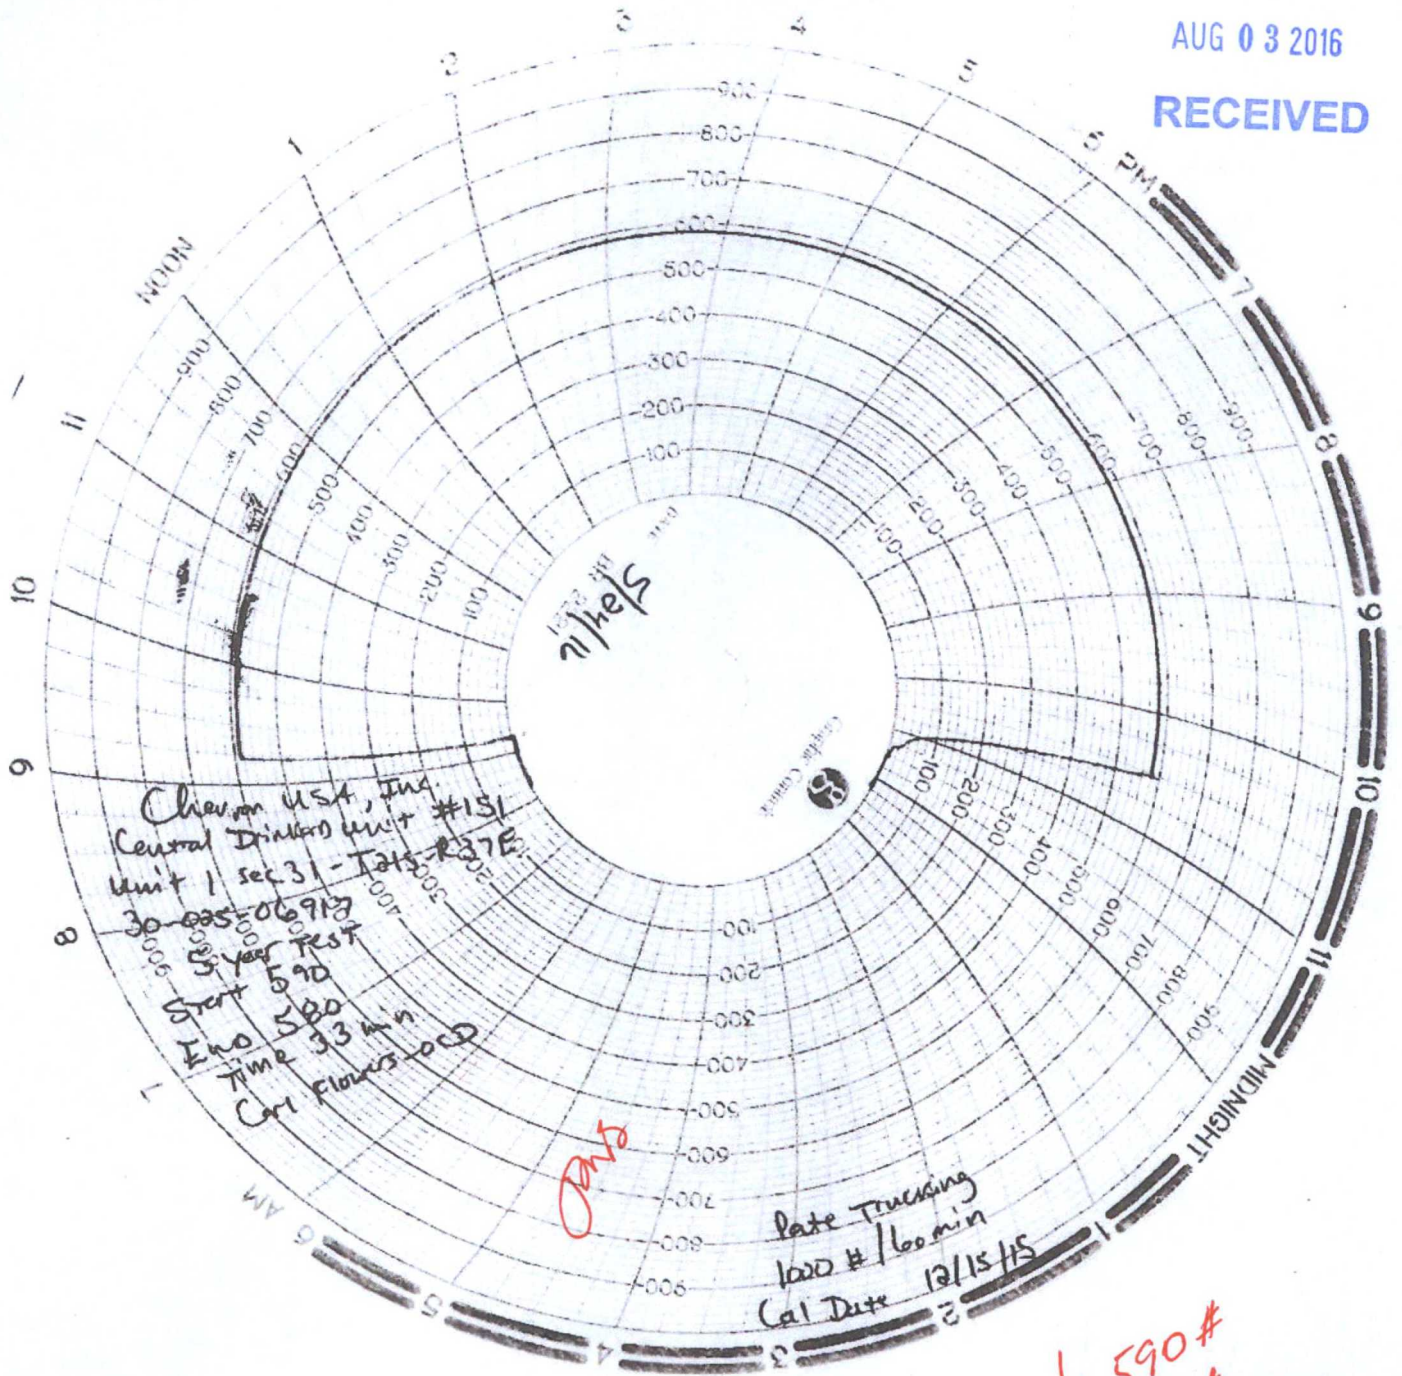 AUG 03 2016
RECEIVED
3
4
5
6 PM
7
8
9
10
11
MIDNIGHT
1
2
3
4
5
6 AM
7
8
9
10
11
NOON
1
2
900
800
700
600
500
400
300
200
100
900
800
700
600
500
400
300
200
100
100
200
300
400
500
600
700
800
900
100
200
300
400
500
600
700
800
900
900
800
700
600
500
400
300
200
100
5/24/16
Graphic Controls
Chevron USA, Inc
Central Drinkard Unit #151
Unit 1 sec 31-T21S-R37E
5 year Test
Start 590
End 580
Time 33 min
Carl Flowers-OCD
Pate Trucking
1000 # / 60 min
Cal Date 12/15/15
590 #